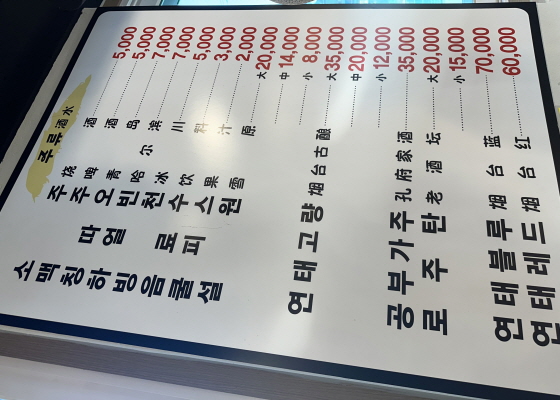 주류 酒水
소주 烧酒 5,000
맥주 啤酒 5,000
칭따오 青岛 7,000
하얼빈 哈尔滨 7,000
빙천 冰川 5,000
음료수 饮料 3,000
쿨피스 果汁 2,000
설원 雪原 大 20,000
中 14,000
小 8,000
연태고량 烟台古酿 大 35,000
中 20,000
小 12,000
공부가주 孔府家酒 35,000
로주탄 老酒坛 大 20,000
小 15,000
연태블루 烟台蓝 70,000
연태레드 烟台红 60,000